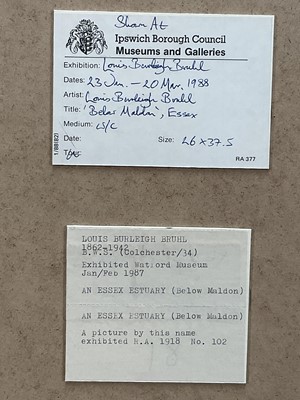 Shown At
Ipswich Borough Council
Museums and Galleries
Exhibition: Louis Burleigh Bruhl
Dates: 23 Jan. — 20 Mar. 1988
Artist: Louis Burleigh Bruhl
Title: 'Below Maldon', Essex
Medium:
Date: Size: 26 x 37.5
RA 377
LOUIS BURLEIGH BRUHL
1862-1942
B.W.S. (Colchester/34)
Exhibited Watford Museum
Jan/Feb 1987
AN ESSEX ESTUARY (Below Maldon)
AN ESSEX ESTUARY (Below Maldon)
A picture by this name
exhibited R.A. 1918 No. 102